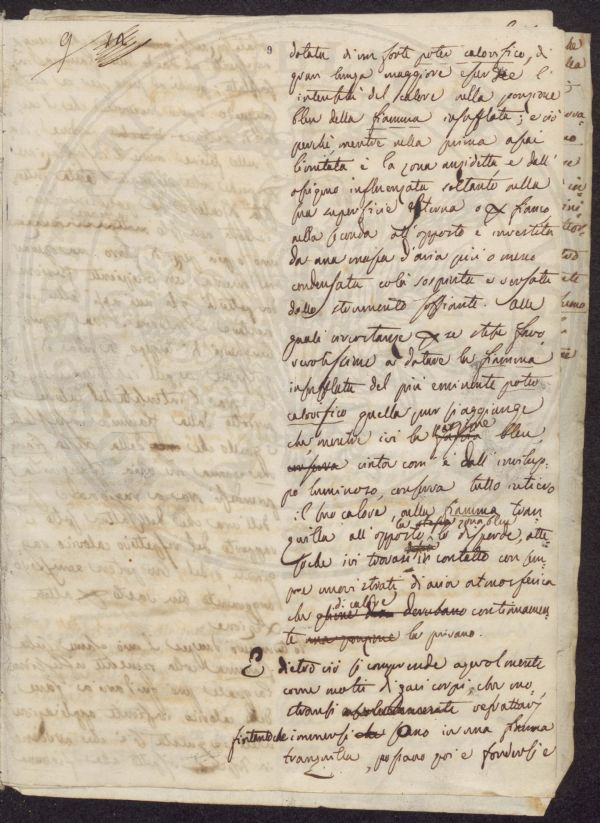 9
9
dotata di un forte poter calorifico, di
gran lunga maggiore essendo l'
intensità del calore nella porzione
bleu della fiamma insufflata; e ciò
perchè mentre nella prima assai
limitata è la zona anzidetta e dall'
ossigeno influenzata soltanto nella
sua superficie esterna o fianco
nella seconda all'opposto è investita
da una massa d'aria più o meno
condensata colà sospinta e versata
dallo strumento soffiante. Alle
quali circostanze se stesse favo
revolissime a dotare la fiamma
insufflata del più eminente poter
calorifico quella pur s'aggiunge
che mentre ivi la porzione bleu,
cinta com'è dall'invilup-
po luminoso, conserva tutto intiero
il suo calore, nella fiamma tran
quilla all'opposto la stessa zona bleu lo disperde, atte
soche ivi trovasi in contatto con sem
pre nuovi strati di aria atmosferica
che di calore continuamen-
te la privano.
E dietro ciò si comprende agevolmente
come molti di quei corpi, che mo
stransi refrattarj
fintantoche immersi sono in una fiamma
tranquilla, possano poi e fondersi e